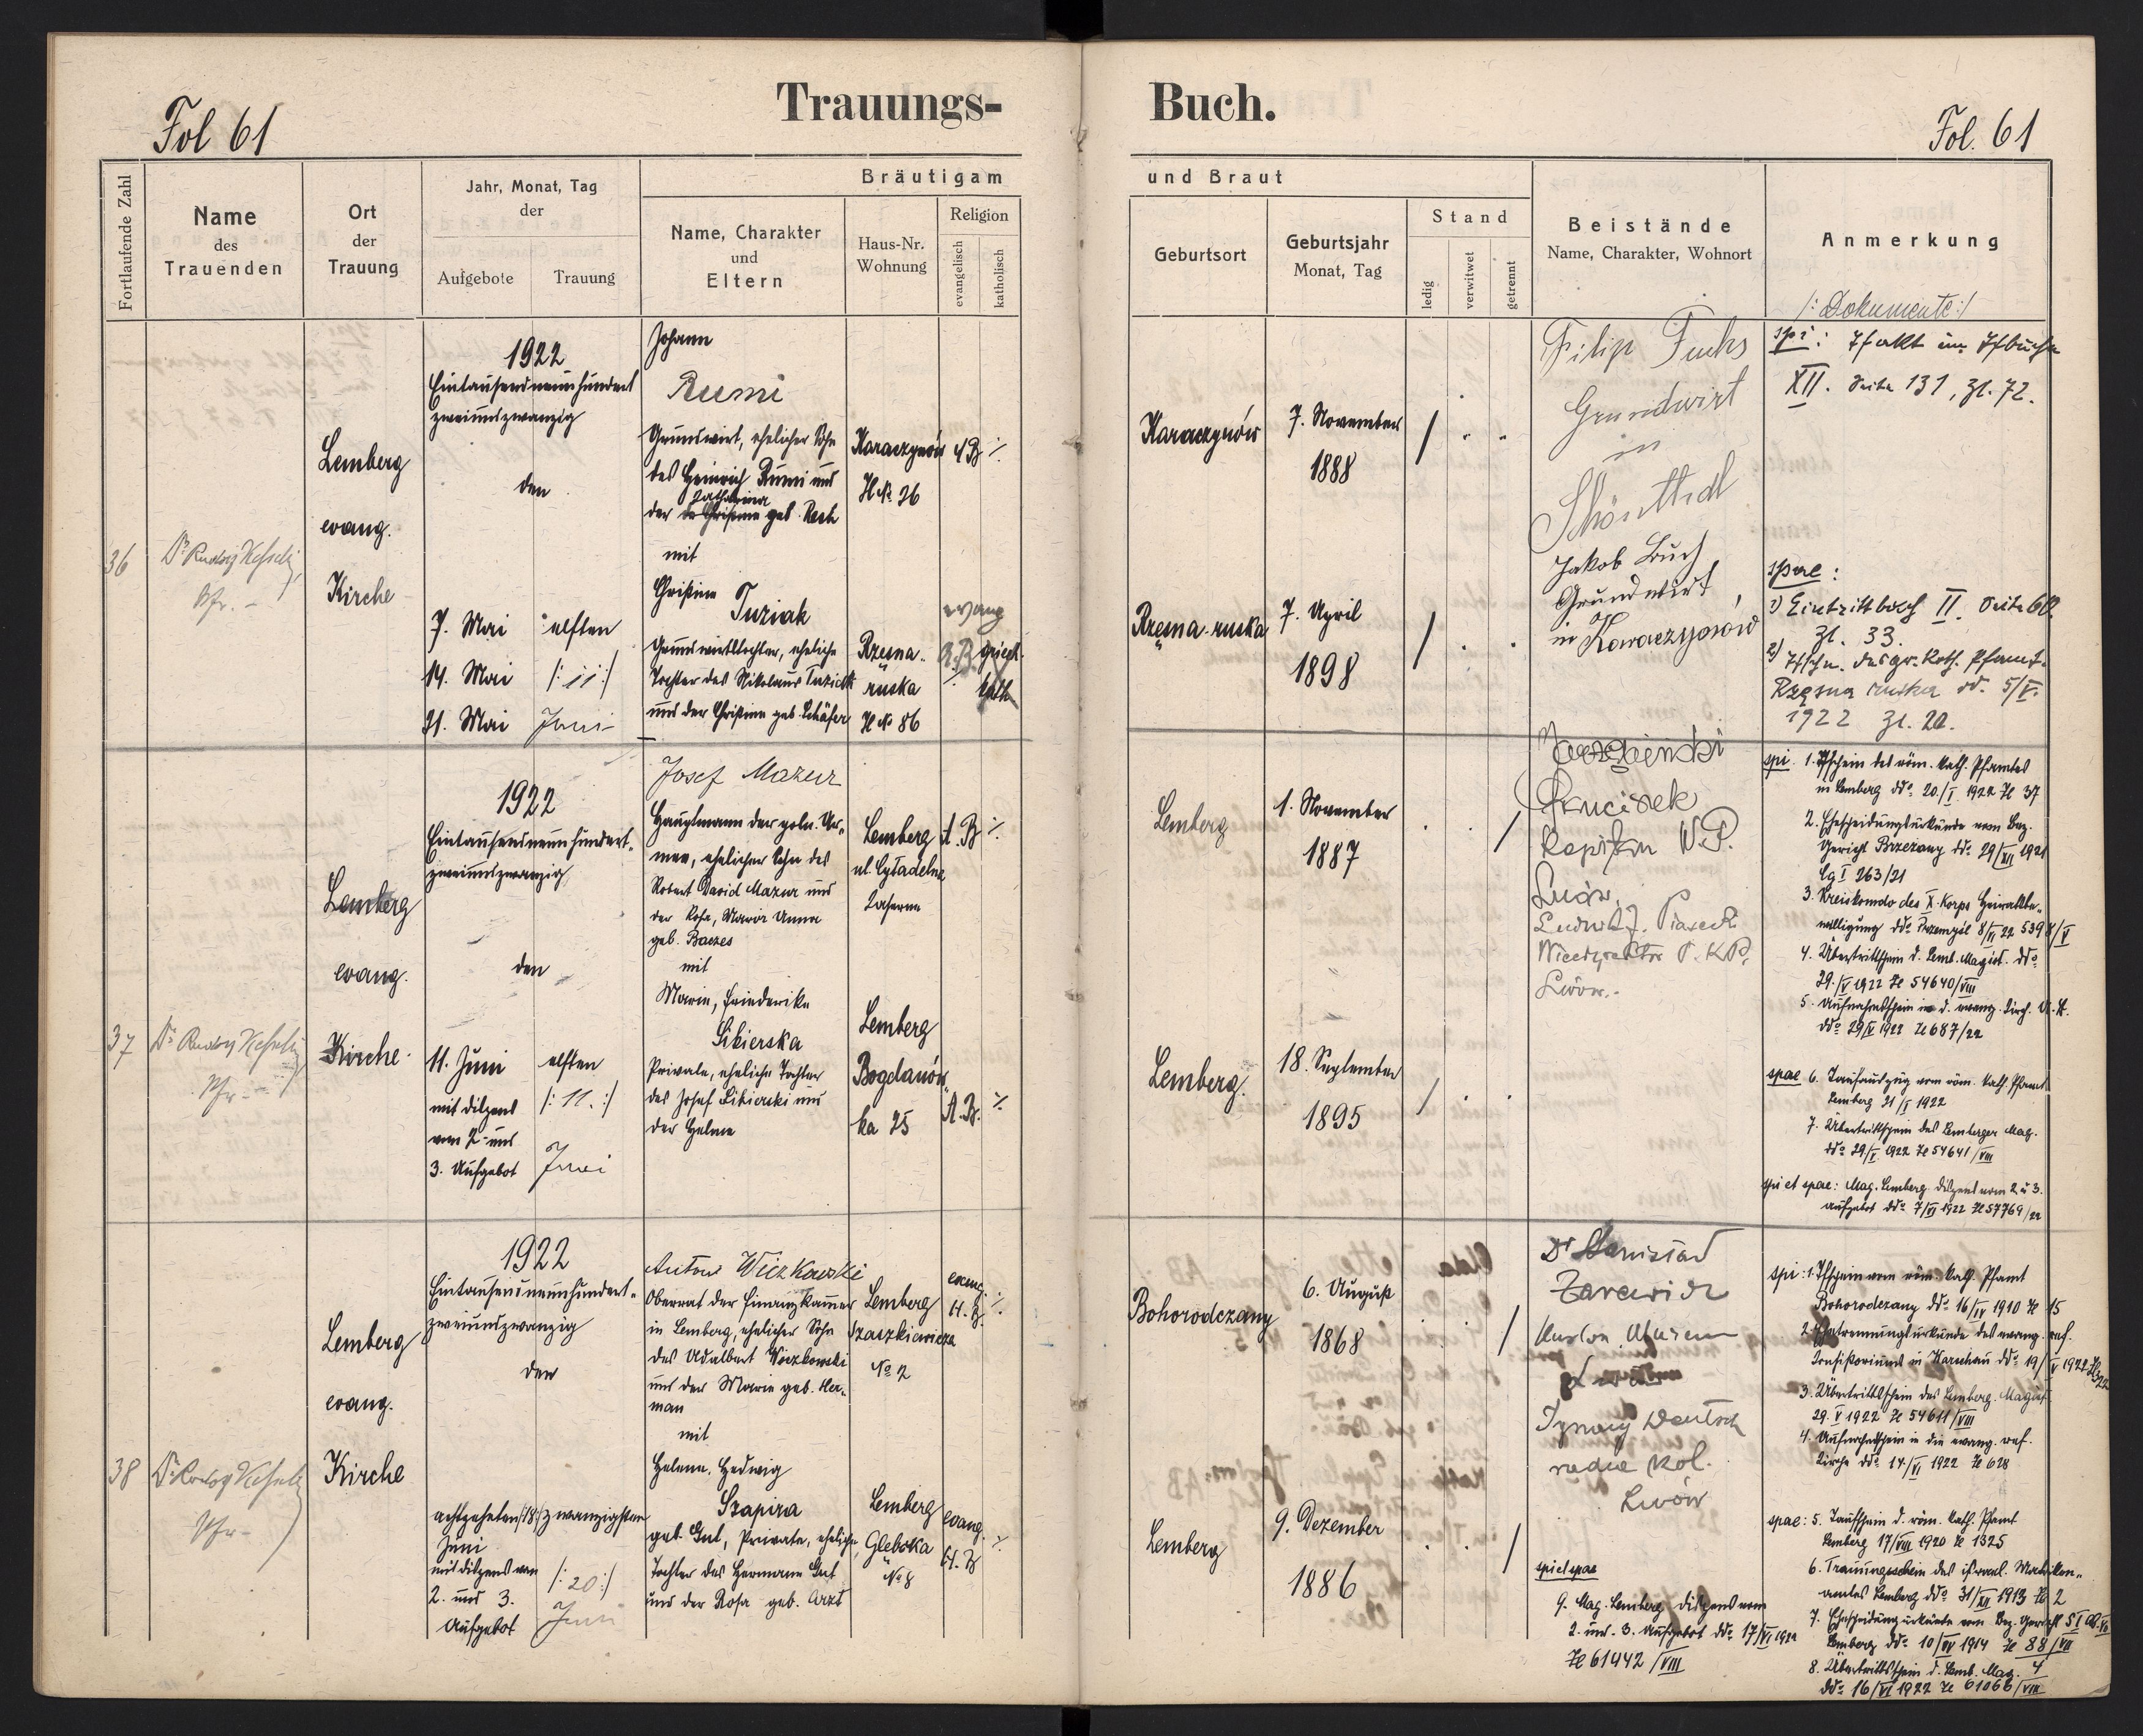 Trauungs-
Buch.
Fol 61
Fol. 61
Fortlaufende Zahl
Name
des
Trauenden
Ort
der
Trauung
Jahr, Monat, Tag
der
Aufgebote
Trauung
Bräutigam
und Braut
Name, Charakter
und
Eltern
Haus-Nr.
Wohnung
Religion
evangelisch
katholisch
Geburtsort
Geburtsjahr
Monat, Tag
Stand
ledig
verwitwet
getrennt
Beistände
Name, Charakter, Wohnort
Anmerkung
/: Dokumente :/
36
Pfr. -
Lemberg
evang.
Kirche
1922
Eintausendneunhundert
zweiundzwanzig
den
7. Mai
14. Mai
21. Mai
elften
/: 11 :/
Juni
Johann
Rumi
Grundwirt, ehelicher Sohn
des Heinrich Rumi und
Katharina
der Christine geb. Resh
mit
Christine
Tuziak
Grundwirttochter, eheliche
Tochter des Nikolaus Tuziak
und der Christine geb. Schäfer
Karaczynów
H No 26
A B ·/·
Rzesna
ruska
H No 86
evang
A. B.
griech.
kath
Karaczynów
7. November
1888
Rzęsna ruska
7. April
1898
Filip Fuchs
Grundwirt
in
Schönthal
Jakob Buch
Grundwirt,
in Karaczynów
spi:
XII. Seite 131, Zl. 72.
spae:
1) Eintrittbuch II. Seite 60.
Zl. 33.
2) des gr. Kath. Pfamt.
Rzęsna ruska dd. 5/V.
1922 Zl. 20.
37
Pfr. -
Lemberg
evang.
Kirche
1922
Eintausendneunhundert-
zweiundzwanzig
den
11. Juni
mit dispens
vom 2. und
3. Aufgebot
elften
/: 11. :/
Juni
Josef Mazur
Hauptmann der poln. Ar-
mee, ehelicher Sohn des
Robert David Mazur und
der Rosa, Maria Anna
geb. Baczes
mit
Marie, Friederike
Sikierska
Private, eheliche Tochter
des Josef Sikierski und
der Helene
Lemberg
ul. Cytadelna
Kaserne
A. B ·/·
Lemberg
Bogdanów-
ka 25
A. B. ·/·
Lemberg
1. November
1887
Lemberg.
18. September
1895
Franciszek
Kapitan W.P.
Lwów.
Lwów.
spi. 1. Tfschein des röm. kath. Pfamtes
in Lemberg ddo. 20./I 1922 Ze 37
2. Ehescheidungsurkunde vom Bez.
Gericht Brzezany ddo. 29/XII 1921
Cg I 263/21
3. Kreiskomdo des X. Korps Heiratsbe-
willigung ddo. Przemyśl
4. Übertrittschein d. Lemb. Magist. ddo.
29./V 1922 Ze 54640/VIII
5. Aufnahmeschein in d. evang. Kirch.
ddo 29/V 1922 Ze 687/22
spae 6. Taufauszug vom röm. kath. Pfamt
Lemberg 21/I 1922
7. Übertrittschein des Lemberger Mag.
ddo 29/V. 1922 Ze 54641/VIII
spi et spae: Mag. Lemberg. dispens vom 2 u 3.
Aufgebot ddo. 7/VI 1922 Ze 57769/22
38
Pfr. -
Lemberg
evang.
Kirche
1922
Eintausendneunhundert-
zweiundzwanzig
den
achtzehnten /18/
Juni
mit dispens von
2. und 3.
Aufgebot
zwanzigsten
/: 20 :/
Juni
Anton Wiczkowski
Oberrat der Finanzkammer
in Lemberg, ehelicher Sohn
des Adalbert Wiczkowski
und der Marie geb. Her-
man
mit
Helene, Hedwig
Szapira
geb. Gut, Private, eheliche
Tochter des Hermann Gut
und der Rosa geb. Arzt
Lemberg
Szaszkiewicza
No 2
evang.
H. B. ·/·
Lemberg
Gleboka
No 8
evang.
H. B ·/·
Bohorodczany
6. August
1868
Lemberg
9. Dezember
1886
Dr Stanisław
Zarewicz
Ignacy Deutsch
radca kol.
Lwów
spi: 1. Tfschein vom röm. kath. Pfamt
Bohorodczany ddo. 16/IV 1910 Ze 15
2. Ehetrennungsurkunde des evang. ref.
Konsistoriums in Warschau
3. Übertrittschein des Lemberg. Magist.
29. V 1922 Ze 54611/VIII
4. Aufnahmschein in die evang. ref.
Kirche ddo. 14/VI 1922 Ze 628
spae: 5. Taufschein d. röm. kath. Pfamt
Lemberg 17/VIII 1920 Ze 1325
6. Trauungsschein des israel. Matriken-
amtes Lemberg ddo 31/XII 1913 Ze 2
7. Ehescheidungsurkunde vom Bez. Gericht
Lemberg ddo. 10/IV 1914 Ze 88/VII
8. Übertrittschein d. Lemb. Mag. 4
ddo. 16/VI 1922 Ze 61066/VIII
spi et spae
9. Mag. Lemberg dispens vom
2. und. 3. Aufgebot ddo. 17/VI 1922
Ze 61442/VIII